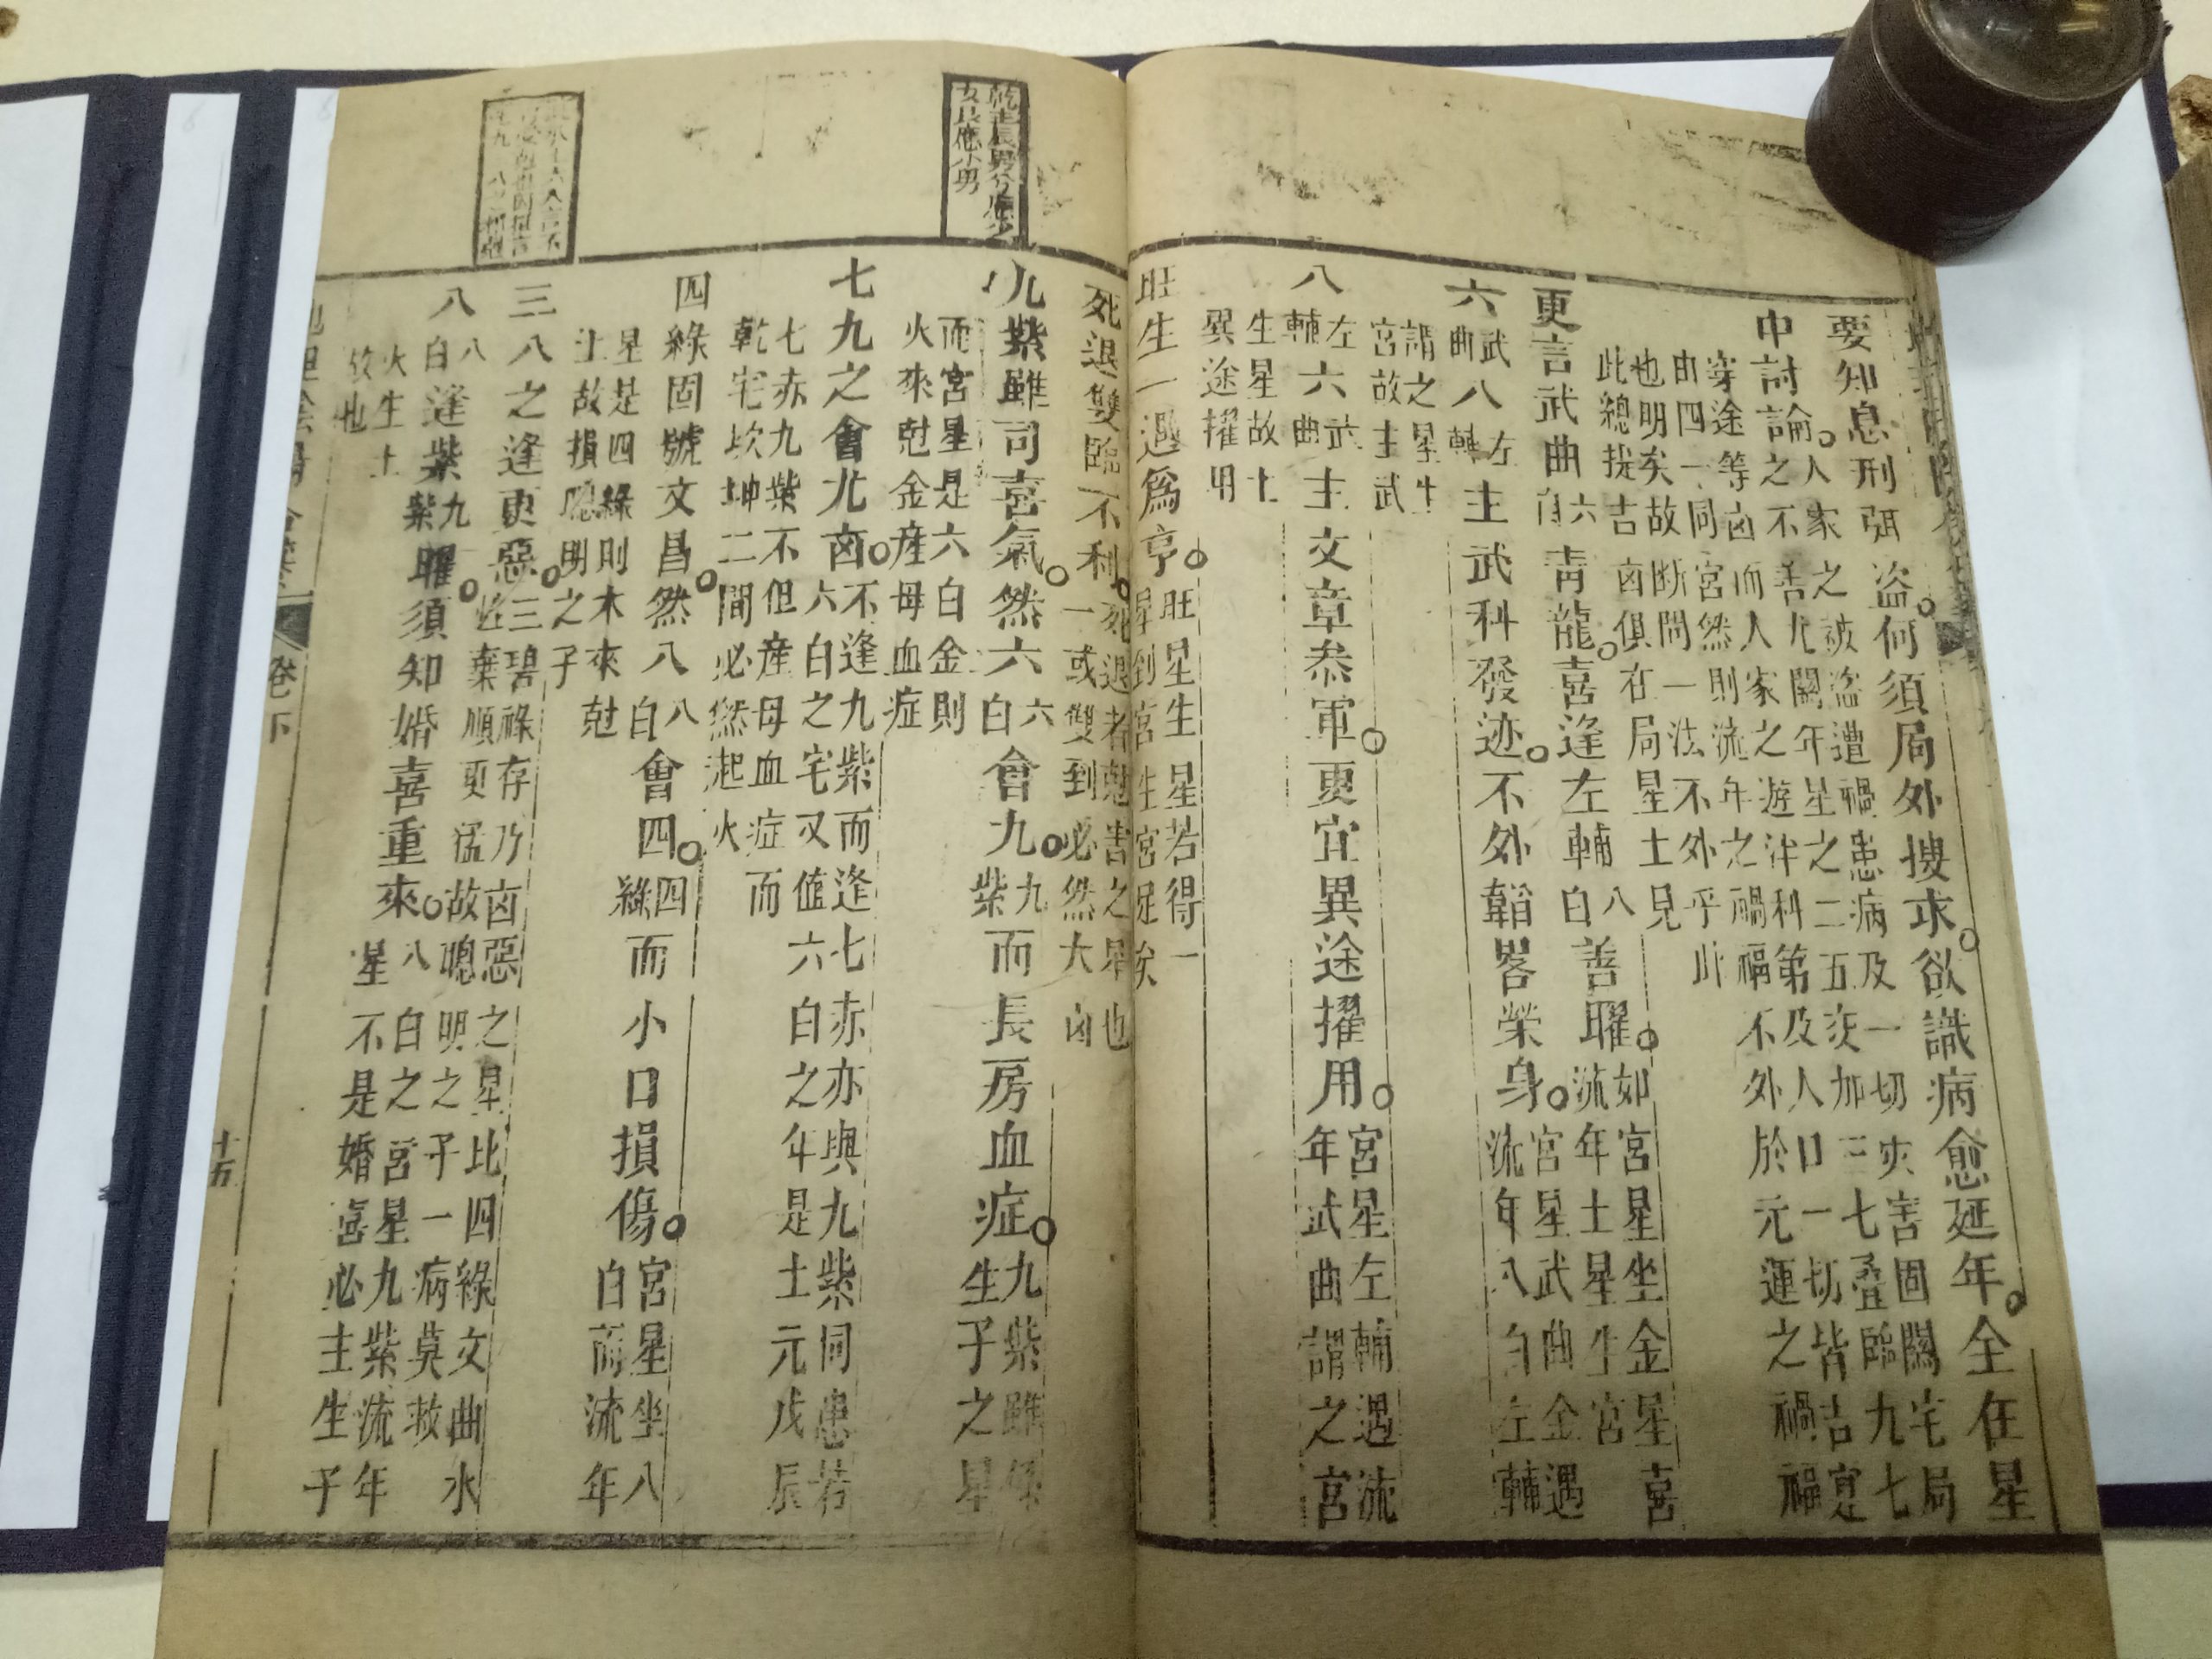 要知息刑弭盜何須局外搜求欲識病愈延年全在星
中討論人家之被盜遭禍患病及一切夾害固關宅局
之不善尤關年星之二五交加三七叠臨九七
穿途等凶而人家之遊泮科第及人口一切皆吉寔
由四一同宮然則流年之禍福不外於元運之禍福
也明矣故斷問一法不外乎此
此總提吉凶俱在局星土見
更言武曲六白青龍喜逢左輔八白善曜如宮星坐金星喜
流年土星生宮
六武曲八左輔主武科發迹不外韜畧榮身宮星武曲金遇
流年八白左輔
謂之星生
宮故主武
八左輔六武曲主文章叅軍更宜異途擢用宮星左輔遇流
年武曲謂之宮
生星故土
異途擢用
旺生一遇爲亨旺星生星若得一
星到宮生宮足矣
死退雙臨不利死退者尅害之星也
一或雙到必然大凶
九紫雖司喜氣然六六白會九九紫而長房血症九紫雖係
生子之星
而宮星是六白金則
火來尅金産母血症
七九之會尤凶不逢九紫而逢七赤亦與九紫同患若
六白之宅又值六白之年是土元戊辰
七赤九紫不但産母血症而
乾宅坎坤二間必然起火
四綠固號文昌然八八白會四四綠而小口損傷宮星坐八
白而流年
星是四綠則木來尅
土故損聰明之子
三八之逢更惡三碧祿存乃凶惡之星比四綠文曲水
性棄順更猛故聰明之子一病莫救
八八白逢紫九紫曜須知婚喜重來八白之宮星九紫流年
星不是婚喜必主生子
火生土
故也
卷下
十五
女艮應小男